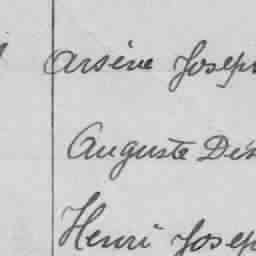 Arsène Joseph
Auguste Dés
Henri Josep